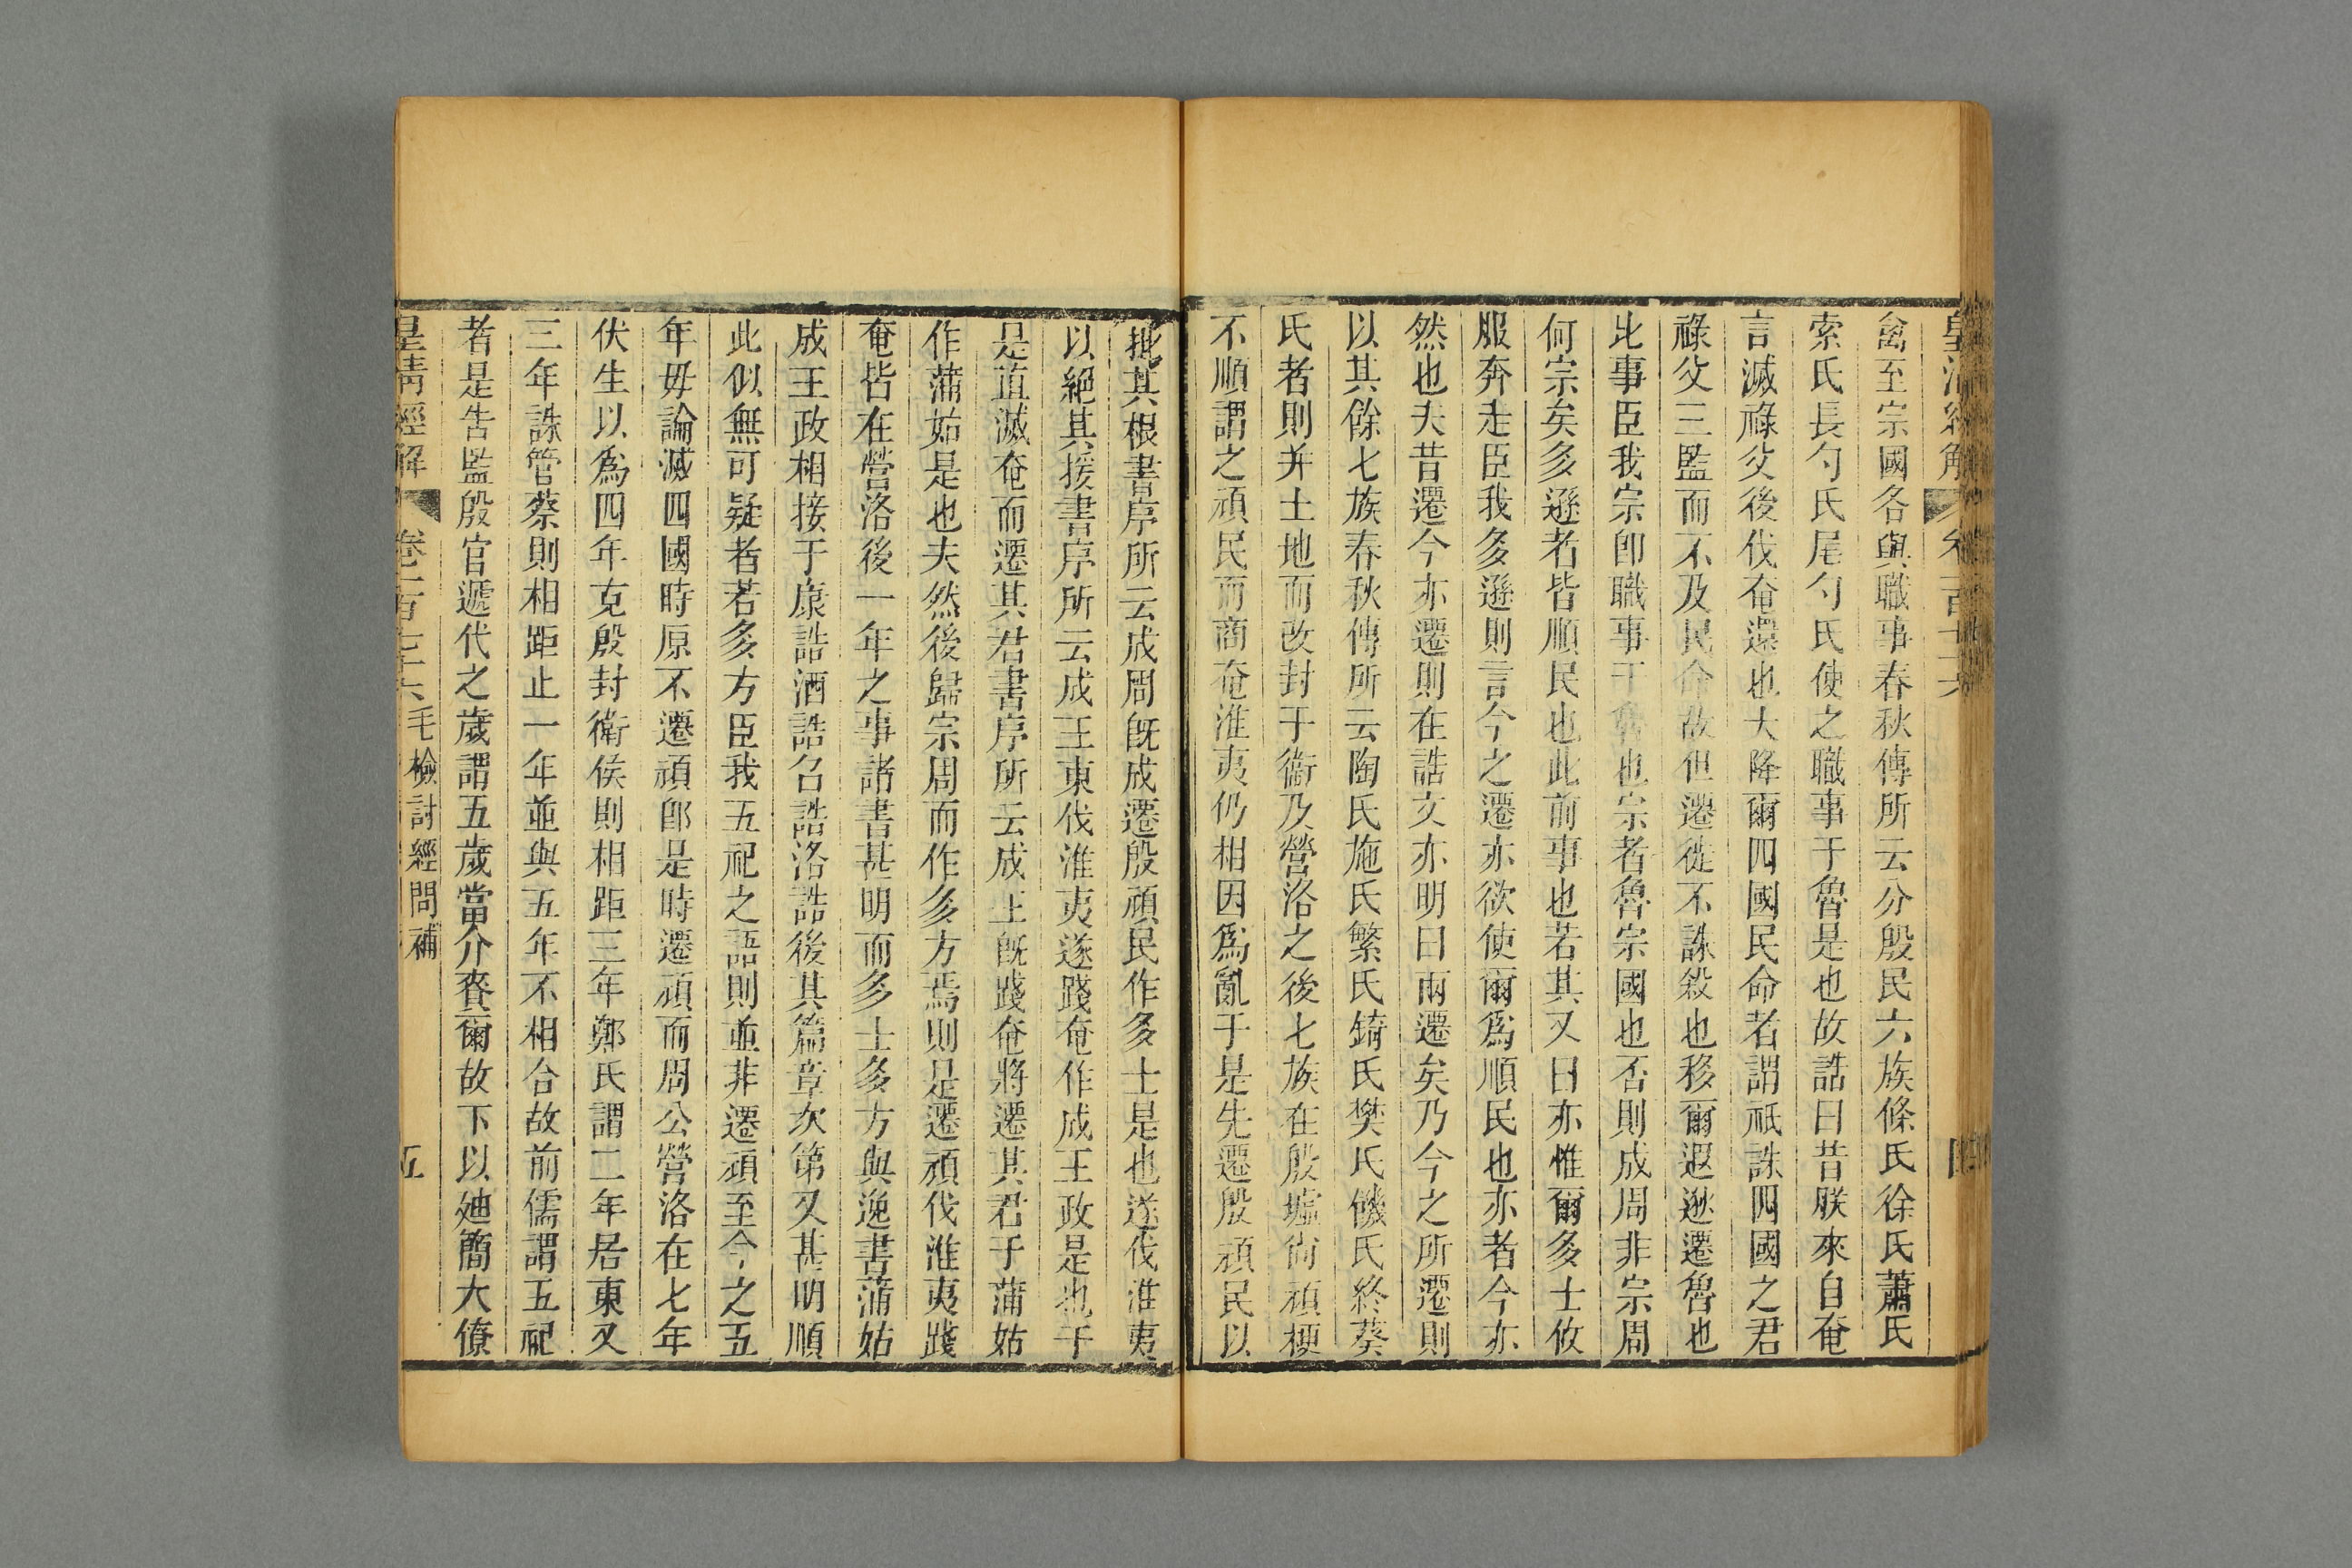 禽至宗國各與職事春秋傳所云分殷民六族條氏徐氏蕭氏
索氏長勺氏尾勺氏使之職事于魯是也故誥曰昔朕來自奄
言滅祿父後伐奄還也大降爾四國民命者謂祇誅四國之君
祿父三監而不及民命故但遷徙不誅殺也移爾遐逖遷魯也
比事臣我宗卽職事于魯也宗者魯宗國也否則成周非宗周
何宗矣多遜者皆順民也此前事也若其又曰亦惟爾多士攸
服奔走臣我多遜則言今之遷亦欲使爾爲順民也亦者今亦
然也夫昔遷今亦遷則在誥文亦明曰兩遷矣乃今之所遷則
以其餘七族春秋傳所云陶氏施氏繁氏錡氏樊氏饑氏終葵
氏者則并土地而改封于衞及營洛之後七族在殷墟尚頑梗
不順謂之頑民而商奄淮夷仍相因爲亂于是先遷殷頑民以
批其根書序所云成周旣成遷殷頑民作多士是也遂伐淮夷
以絕其援書序所云成王東伐淮夷遂踐奄作成王政是也于
是直滅奄而遷其君書序所云成王旣踐奄將遷其君于蒲姑
作蒲姑是也夫然後歸宗周而作多方焉則是遷頑伐淮夷踐
奄皆在營洛後一年之事諸書甚明而多士多方與逸書蒲姑
成王政相接于康誥酒誥召誥洛誥後其篇章次第又甚明順
此似無可疑者若多方臣我五祀之語則並非遷頑至今之五
年毋論滅四國時原不遷頑卽是時遷頑而周公營洛在七年
伏生以爲四年克殷封衞侯則相距三年鄭氏謂二年居東又
三年誅管蔡則相距止一年並與五年不相合故前儒謂五祀
者是告監殷官遞代之歲謂五歲當介賚爾故下以迪簡大僚
皇清經解 卷一百七十六 毛檢討經問補 五